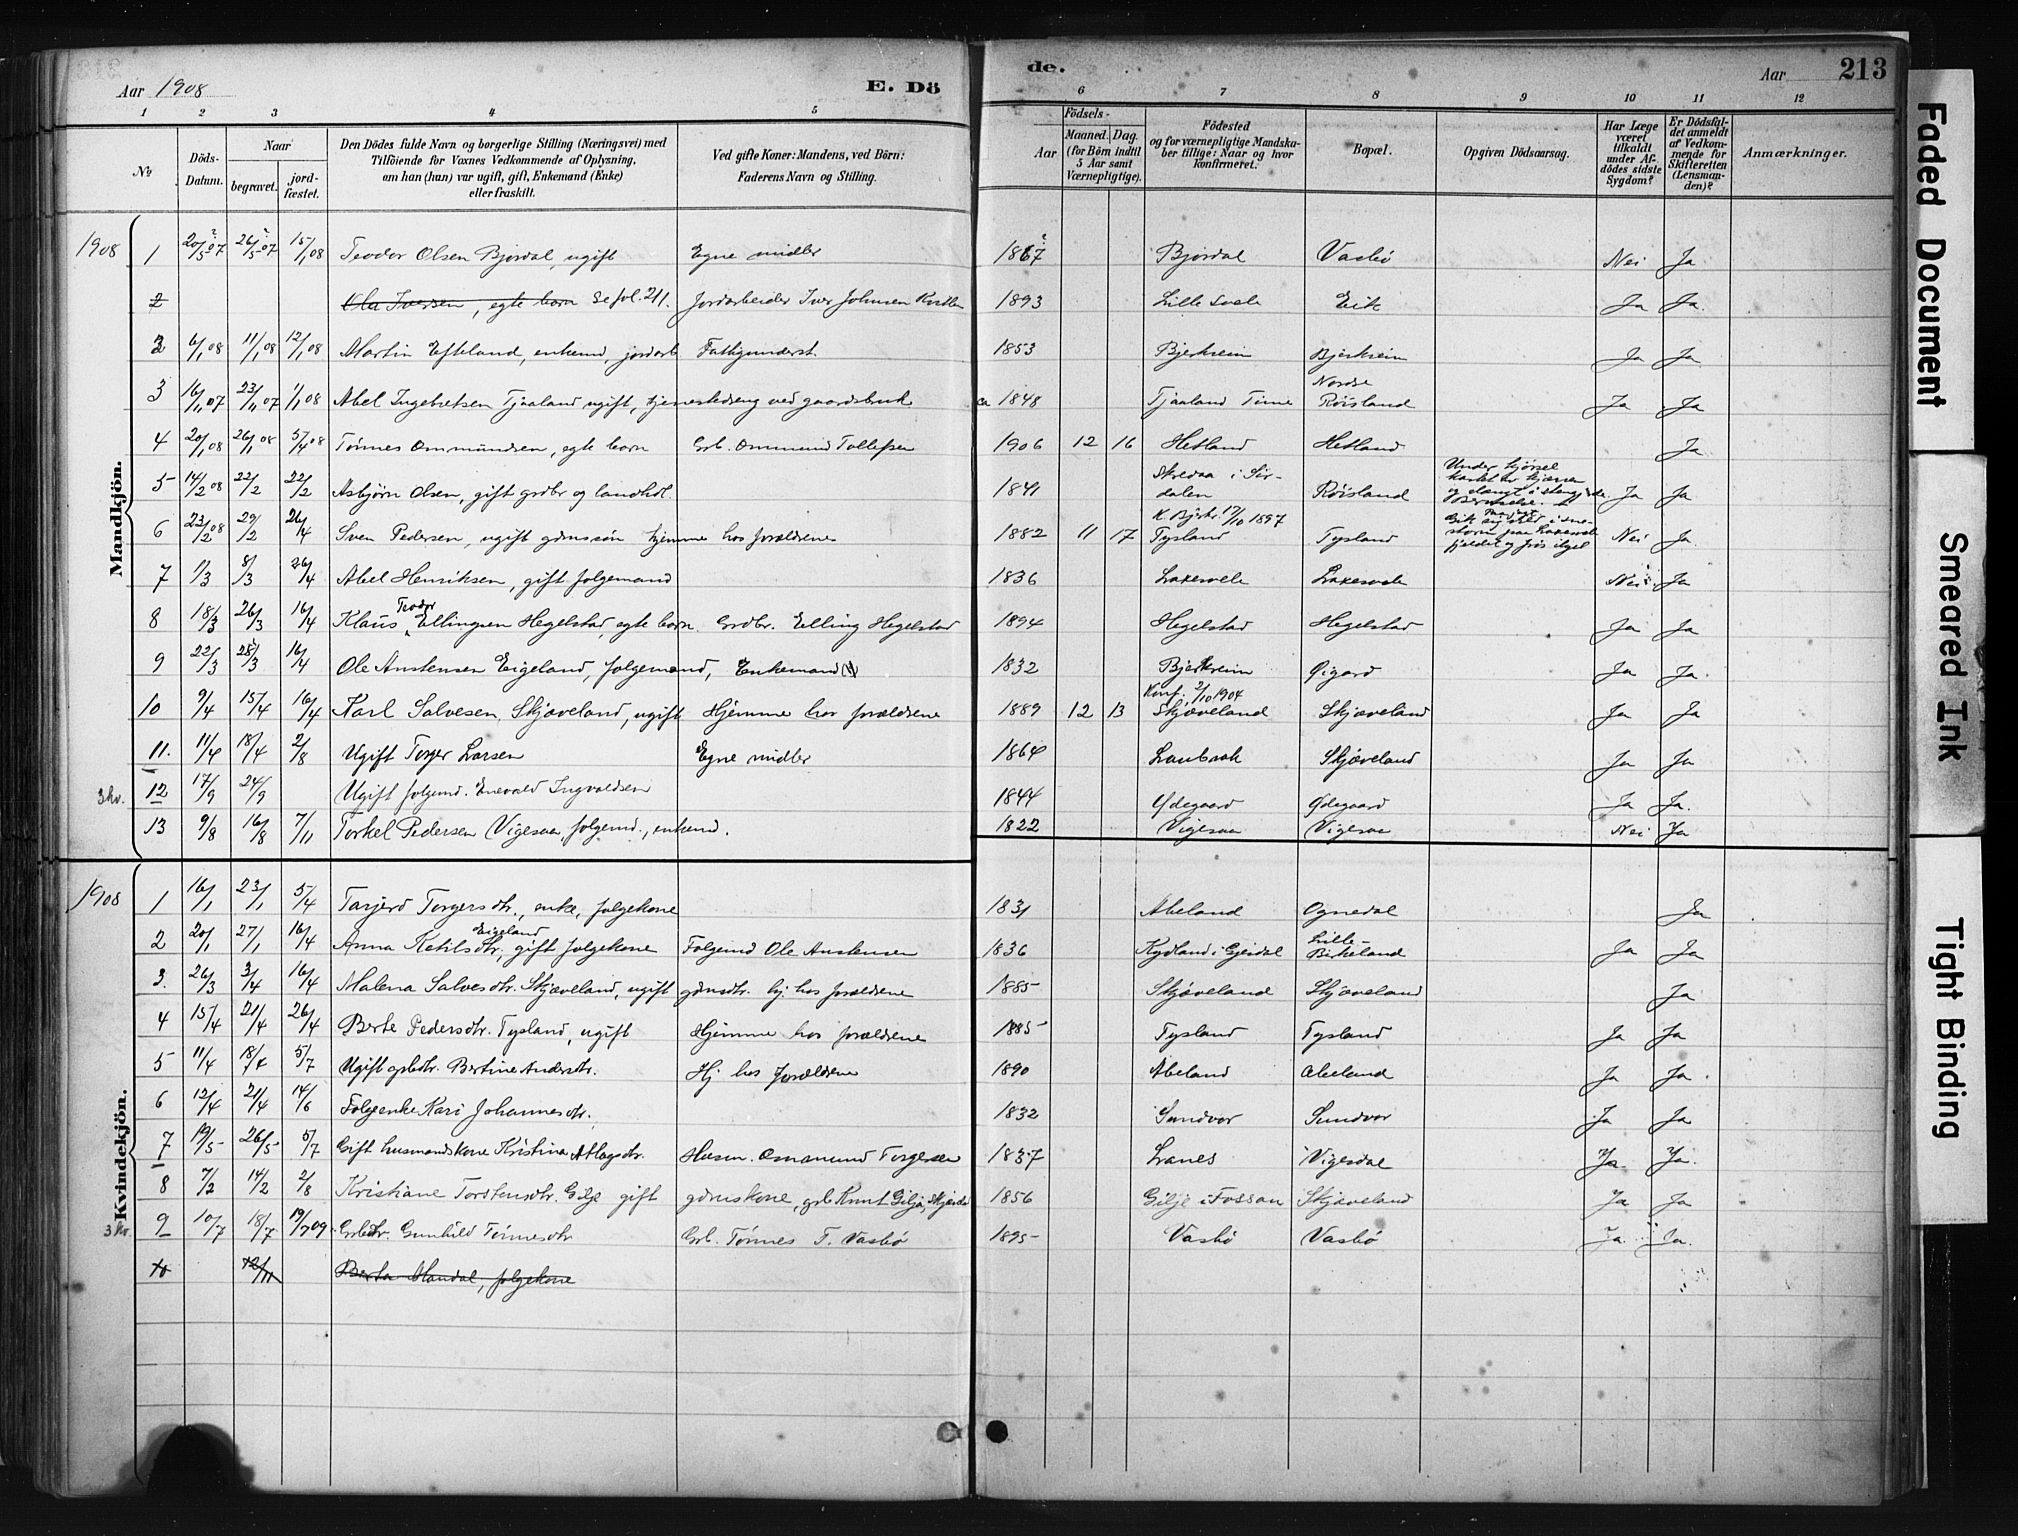 Aar 1908 E. Dö
de. Aar 213
1 2 3 4 5
6 7 8 9 10 11 12
No
Döds-Datum.
Naar
begravet.
jord-fæstet.
Den Dödes fulde Navn og borgerlige Stilling (Næringsvei) med
Tilföiende for Voxnes Vedkommende af Oplysning,
om han (hun) var ugift, gift, Enkemand (Enke)
eller fraskilt.
Ved gifte Koner: Mandens, ved Børn:
Faderens Navn og Stilling.
Födsels-
Aar
Maaned. Dag.
(for Børn indtil
5 Aar samt
Værnepligtige).
Födested
og for værnepligtige Mandska-
ber tillige: Naar og hvor
konfirmeret.
Bopæl.
Opgiven Dödsaarsag.
Har Læge
været
tilkaldt
under Af-
dödes sidste
Sygdom?
Er Dödsfal-
det anmeldt
af Vedkom-
mende for
Skifteretten
(Lensman-
den)?
Anmærkninger.
Mandkjön.
1908 1 20/5 07 ? 26/5 07 ? 15/1 08 Teodor Olsen Bjordal, ugift Egne midler 1867 ? Bjordal Vasbø Nei Ja
2 Ola Iversen, egte barn Se fol. 211. Jordarbeider Iver Johnsen 1893 Lille Svele Eik Ja Ja
2 6/1 08 11/1 08 12/1 08 Martin Efteland, enkemd, jordarb Fattigunderst. 1853 Bjerkreim Bjerkreim Ja Ja
3 16/11 07 23/11 07 1/1 08 Abel Ingebretsen Tjaaland ugift, tjenestedreng ved gaardsbruk ca 1848 Tjaaland Time Nordre Røisland Ja Ja
4 20/1 08 26/1 08 5/4 08 Tønnes Ommundsen, egte barn Grb. Ommund Tollefsen 1906 12 16 Hetland Hetland Ja
5 14/2 08 22/2 22/2 Asbjørn Olsen, gift grdbr og landhdl. 1841 Skredaa i Sirdalen Røisland Under kjørsel kastet av kjærren og slængt i stengjerde Ja Ja
6 23/2 08 29/2 26/4 Sven Pedersen, ugift gdmssøn hjemme hos forældrene 1882 11 17 K. Bjerkr. 17/10 1897 Tysland Tysland Gik sig vild i snestorm paa Laksesvelefjeldet og frøs ihjel Nei Ja
7 1/3 8/3 26/4 Abel Henriksen, gift folgemand 1836 Laksesvele Laksesvele Nei Ja
8 18/3 26/3 16/4 Klaus Teodor Ellingsen Hegelstad, egte barn Grdbr. Elling Hegelstad 1894 Hegelstad Hegelstad Ja Ja
9 22/3 28/3 16/4 Ole Anstensen Eigeland, folgemand, Enkemand 1832 Bjerkreim Øigard Ja Ja.
10 9/4 15/4 16/4 Karl Salvesen Skjæveland, ugift Hjemme hos forældrene 1889 12 13 Konf. 2/10 1904 Skjæveland Skjæveland Ja Ja
11. 11/4 18/4 2/8 Ugift Torger Larsen Egne midler 1864 Laubrak Skjæveland Ja Ja
3 kv. 12 17/9 24/9 Ugift folgemd. Enevald Ingvaldsen 1844 Ødegaard Ødegaard Ja Ja.
13 9/8 16/8 7/11 Torkel Pedersen Vigesaa, folgemd., enkemd. 1822 Vigesaa Vigesaa Nei Ja
Kvindekjön.
1908 1 16/1 23/1 5/4 Tarjerd Torgersdtr., enke, folgekone 1831 Abeland Ognedal Ja
2 20/1 27/1 16/4 Anna Ketilsdtr. Eigeland, gift folgekone Folgemd Ole Anstensen 1836 Kydland i Gjesdal Lille-Birkeland Ja Ja
3. 26/3 3/4 16/4 Malena Salvesdtr. Skjæveland, ugift gdmsdtr. hj. hos forældrene 1885 Skjæveland Skjæveland Ja
4 15/4 21/4 26/4 Berte Pedersdtr. Tysland, ugift Hjemme hos forældrene 1885 Tysland Tysland Ja Ja
5 11/4 18/4 5/7 Ugift grbdtr. Bertine Andersdtr. Hj hos forældrene 1890 Abeland Abeland Ja Ja.
6 12/4 21/4 14/6 Folgeenke Kari Johannesdtr. 1832 Sundvor Sundvor Ja Ja
7 19/5 26/5 5/7 Gift husmandskone Kristina Atlagsdtr. Husm. Ommund Torgersen 1837 Lanes Vigesdal Ja Ja.
8 7/2 14/2 2/8 Kristiane Torstensdtr. Gilje gift gdmskone, grb Knut Gilja, 1856 Gilje i Fossan Skjæveland Ja Ja
3 kv. 9 10/7 18/7 19/7 09 Grbdtr. Gunhild Tønnesdtr Grb. Tønnes T. Vasbø 1895 Vasbø Vasbø Ja Ja.
10 12/11 Berta Mandal, folgekone
Faded Document
Smeared Ink
Tight Binding